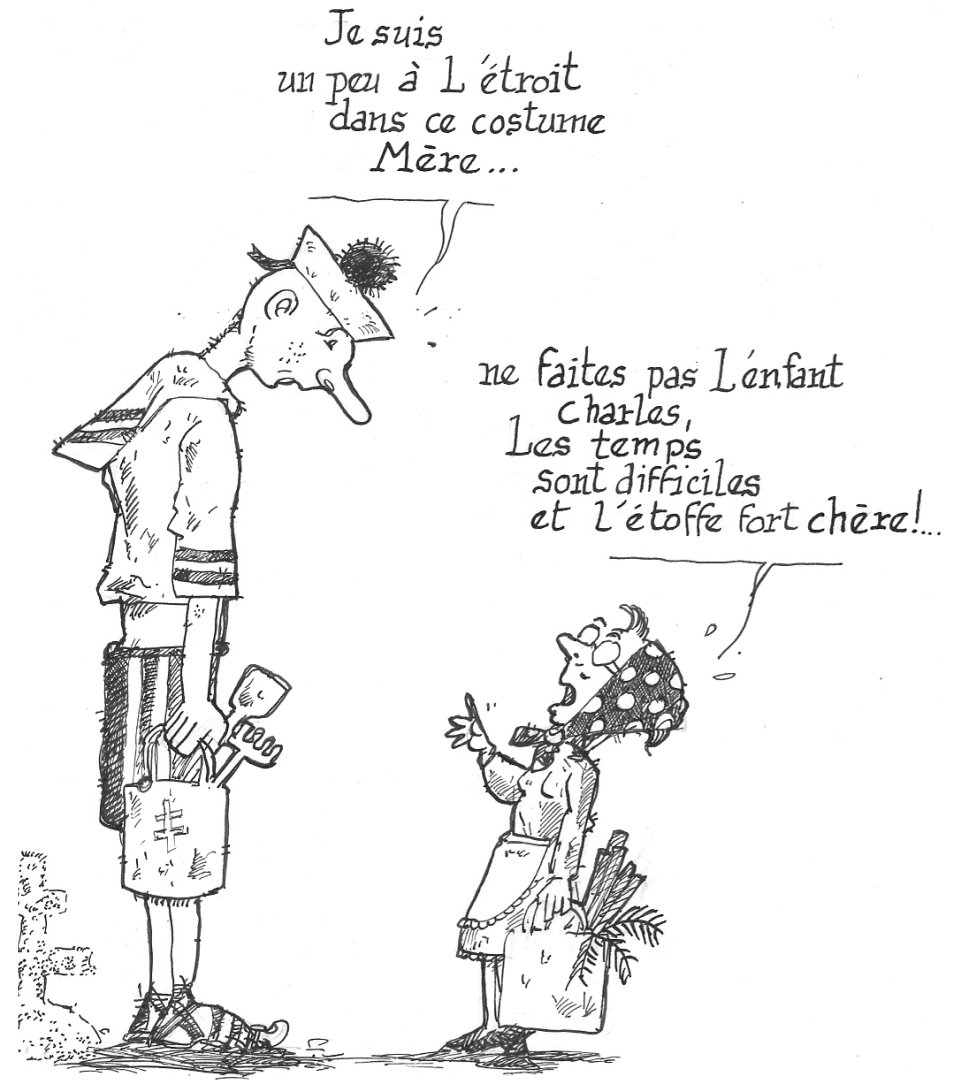 Je suis
un peu à L'étroit
dans ce costume
Mère...
ne faites pas L'énfant
charles,
Les temps
sont difficiles
et l'étoffe fort chère!...